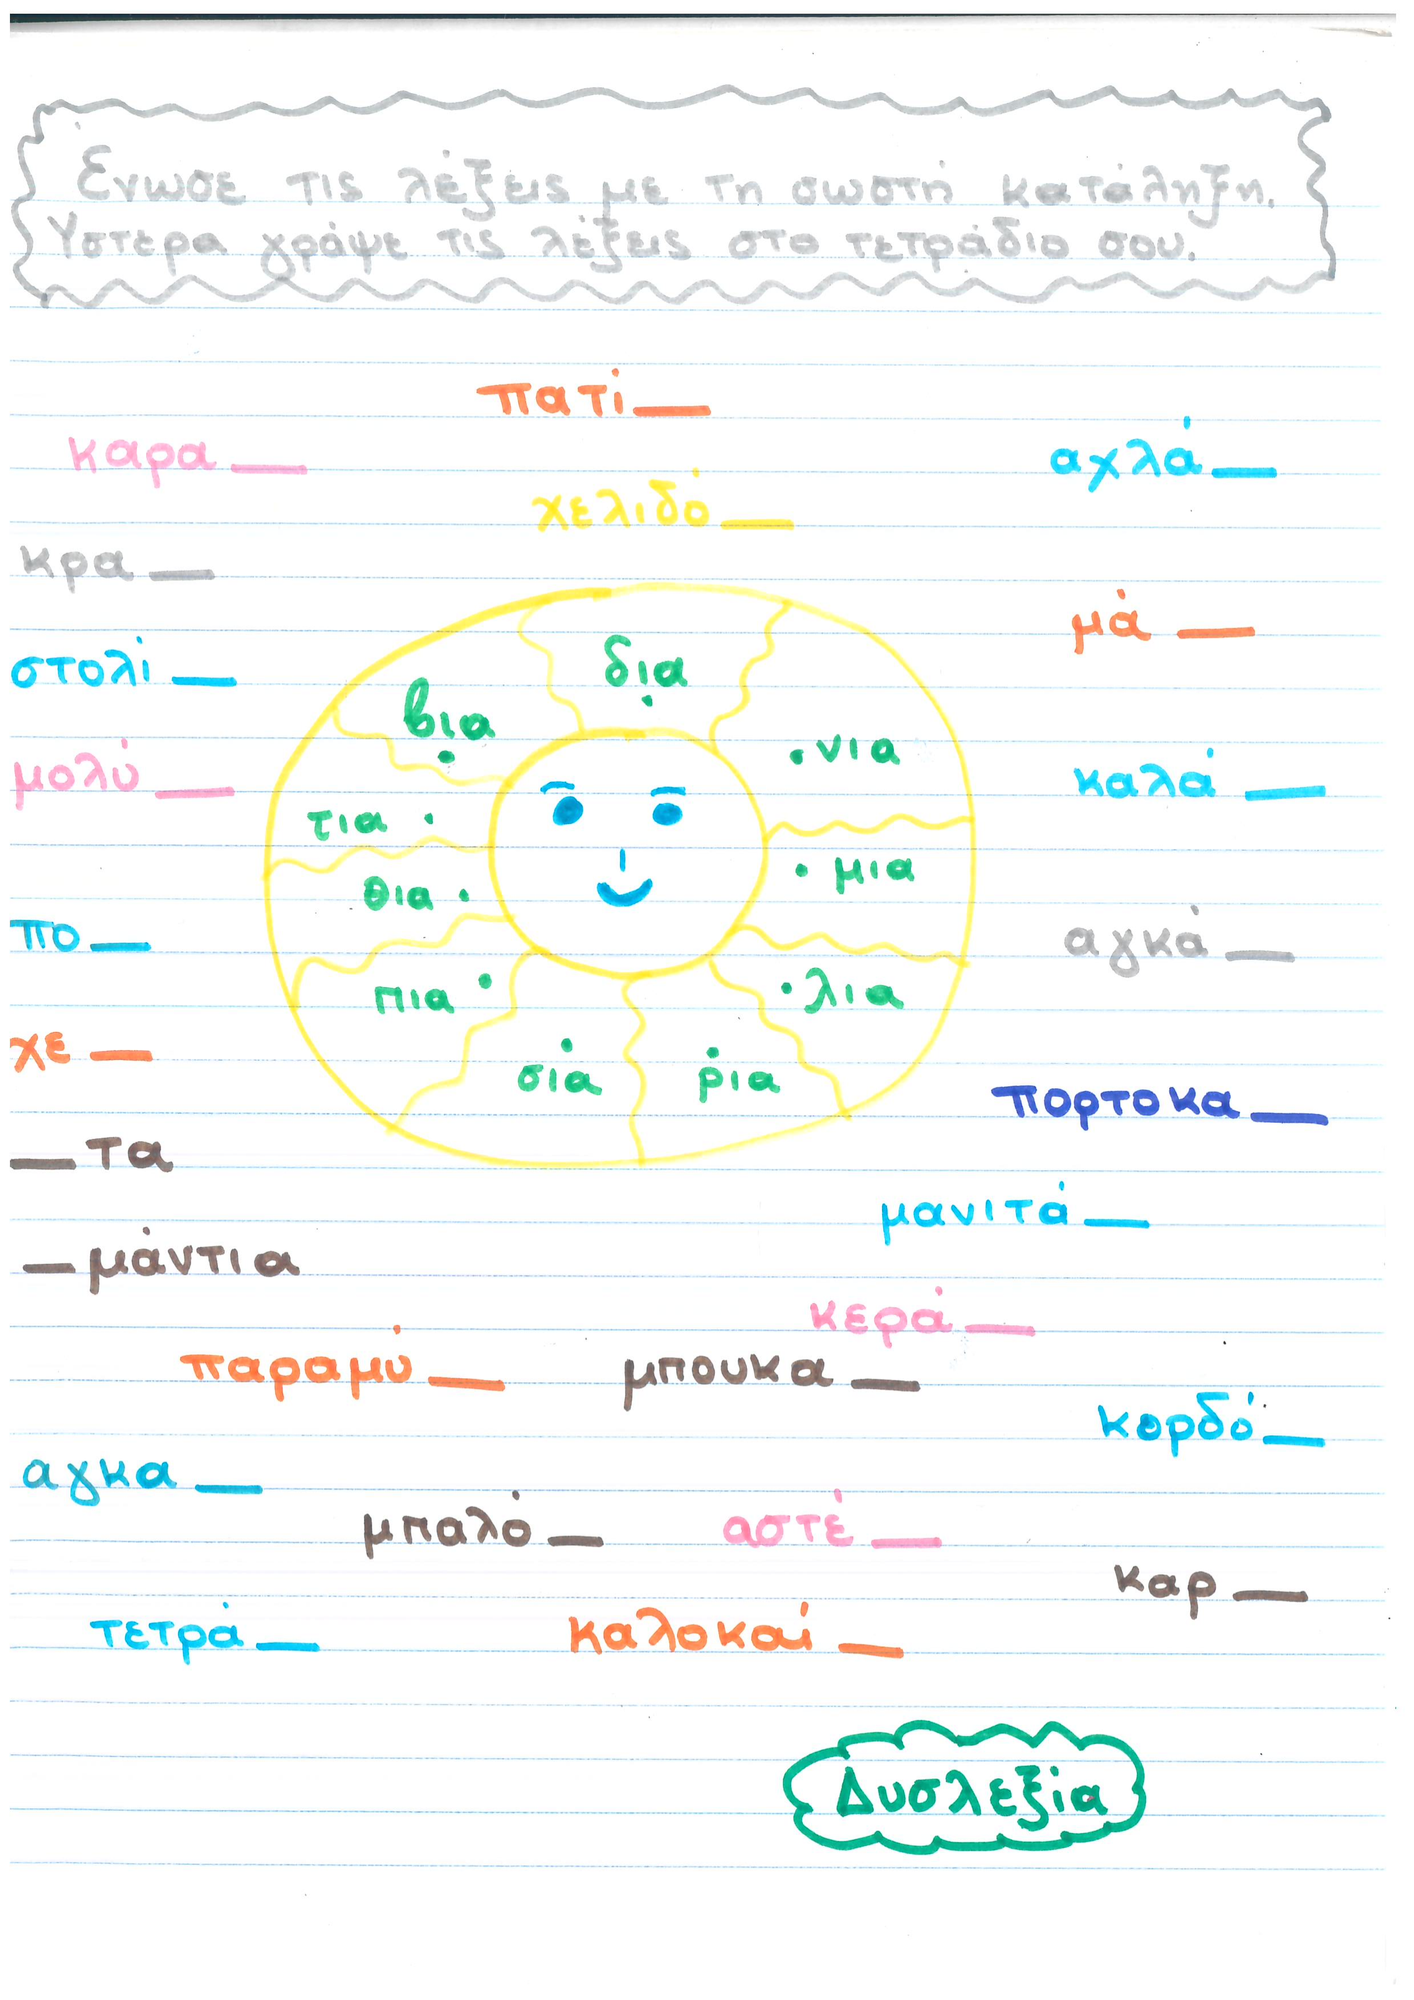 Ένωσε τις λέξεις με τη σωστή κατάληξη.
Ύστερα γράψε τις λέξεις στο τετράδιο σου.
πατί__
καρα__
αχλά__
χελιδό__
κρα__
μά__
στολί__
δια
βια
νια
μολύ__
καλά__
τια
μια
θια
πο__
αγκά__
πια
λια
χε__
σιά
ρια
πορτοκα__
__τα
μανιτά__
__μάντια
κερά__
παραμύ__
μπουκα__
κορδό__
αγκα__
μπαλό__
αστέ__
καρ__
τετρά__
καλοκαί__
Δυσλεξία